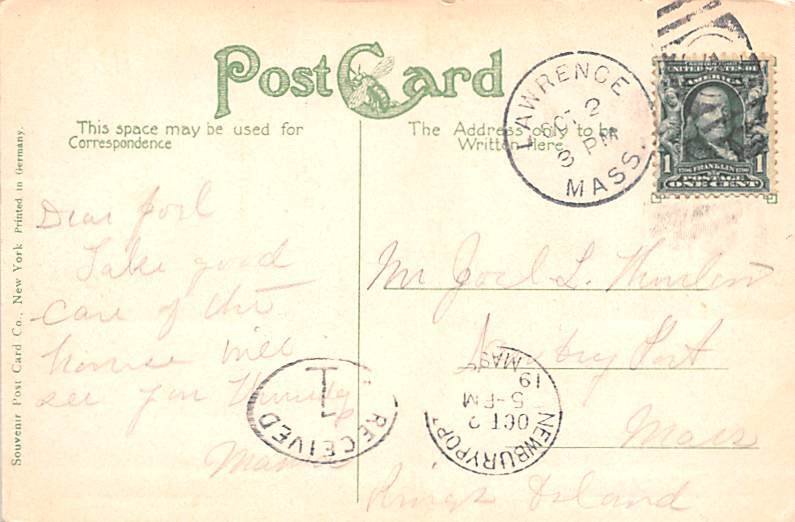 Post Card
This space may be used for
Correspondence
The Address only to be
Written Here.
LAWRENCE
OCT 2
3 PM
MASS.
UNITED STATES OF
AMERICA
1 FRANKLIN 1
POSTAGE
ONE CENT
Souvenir Post Card Co., New York Printed in Germany.
Dear Joel
Take good
care of the
house will
see you Thursday
Mr Joel L.
Newbury Port
Mass
Rings Island
RECEIVED
1
NEWBURYPORT
OCT 2
5-PM
19
MASS